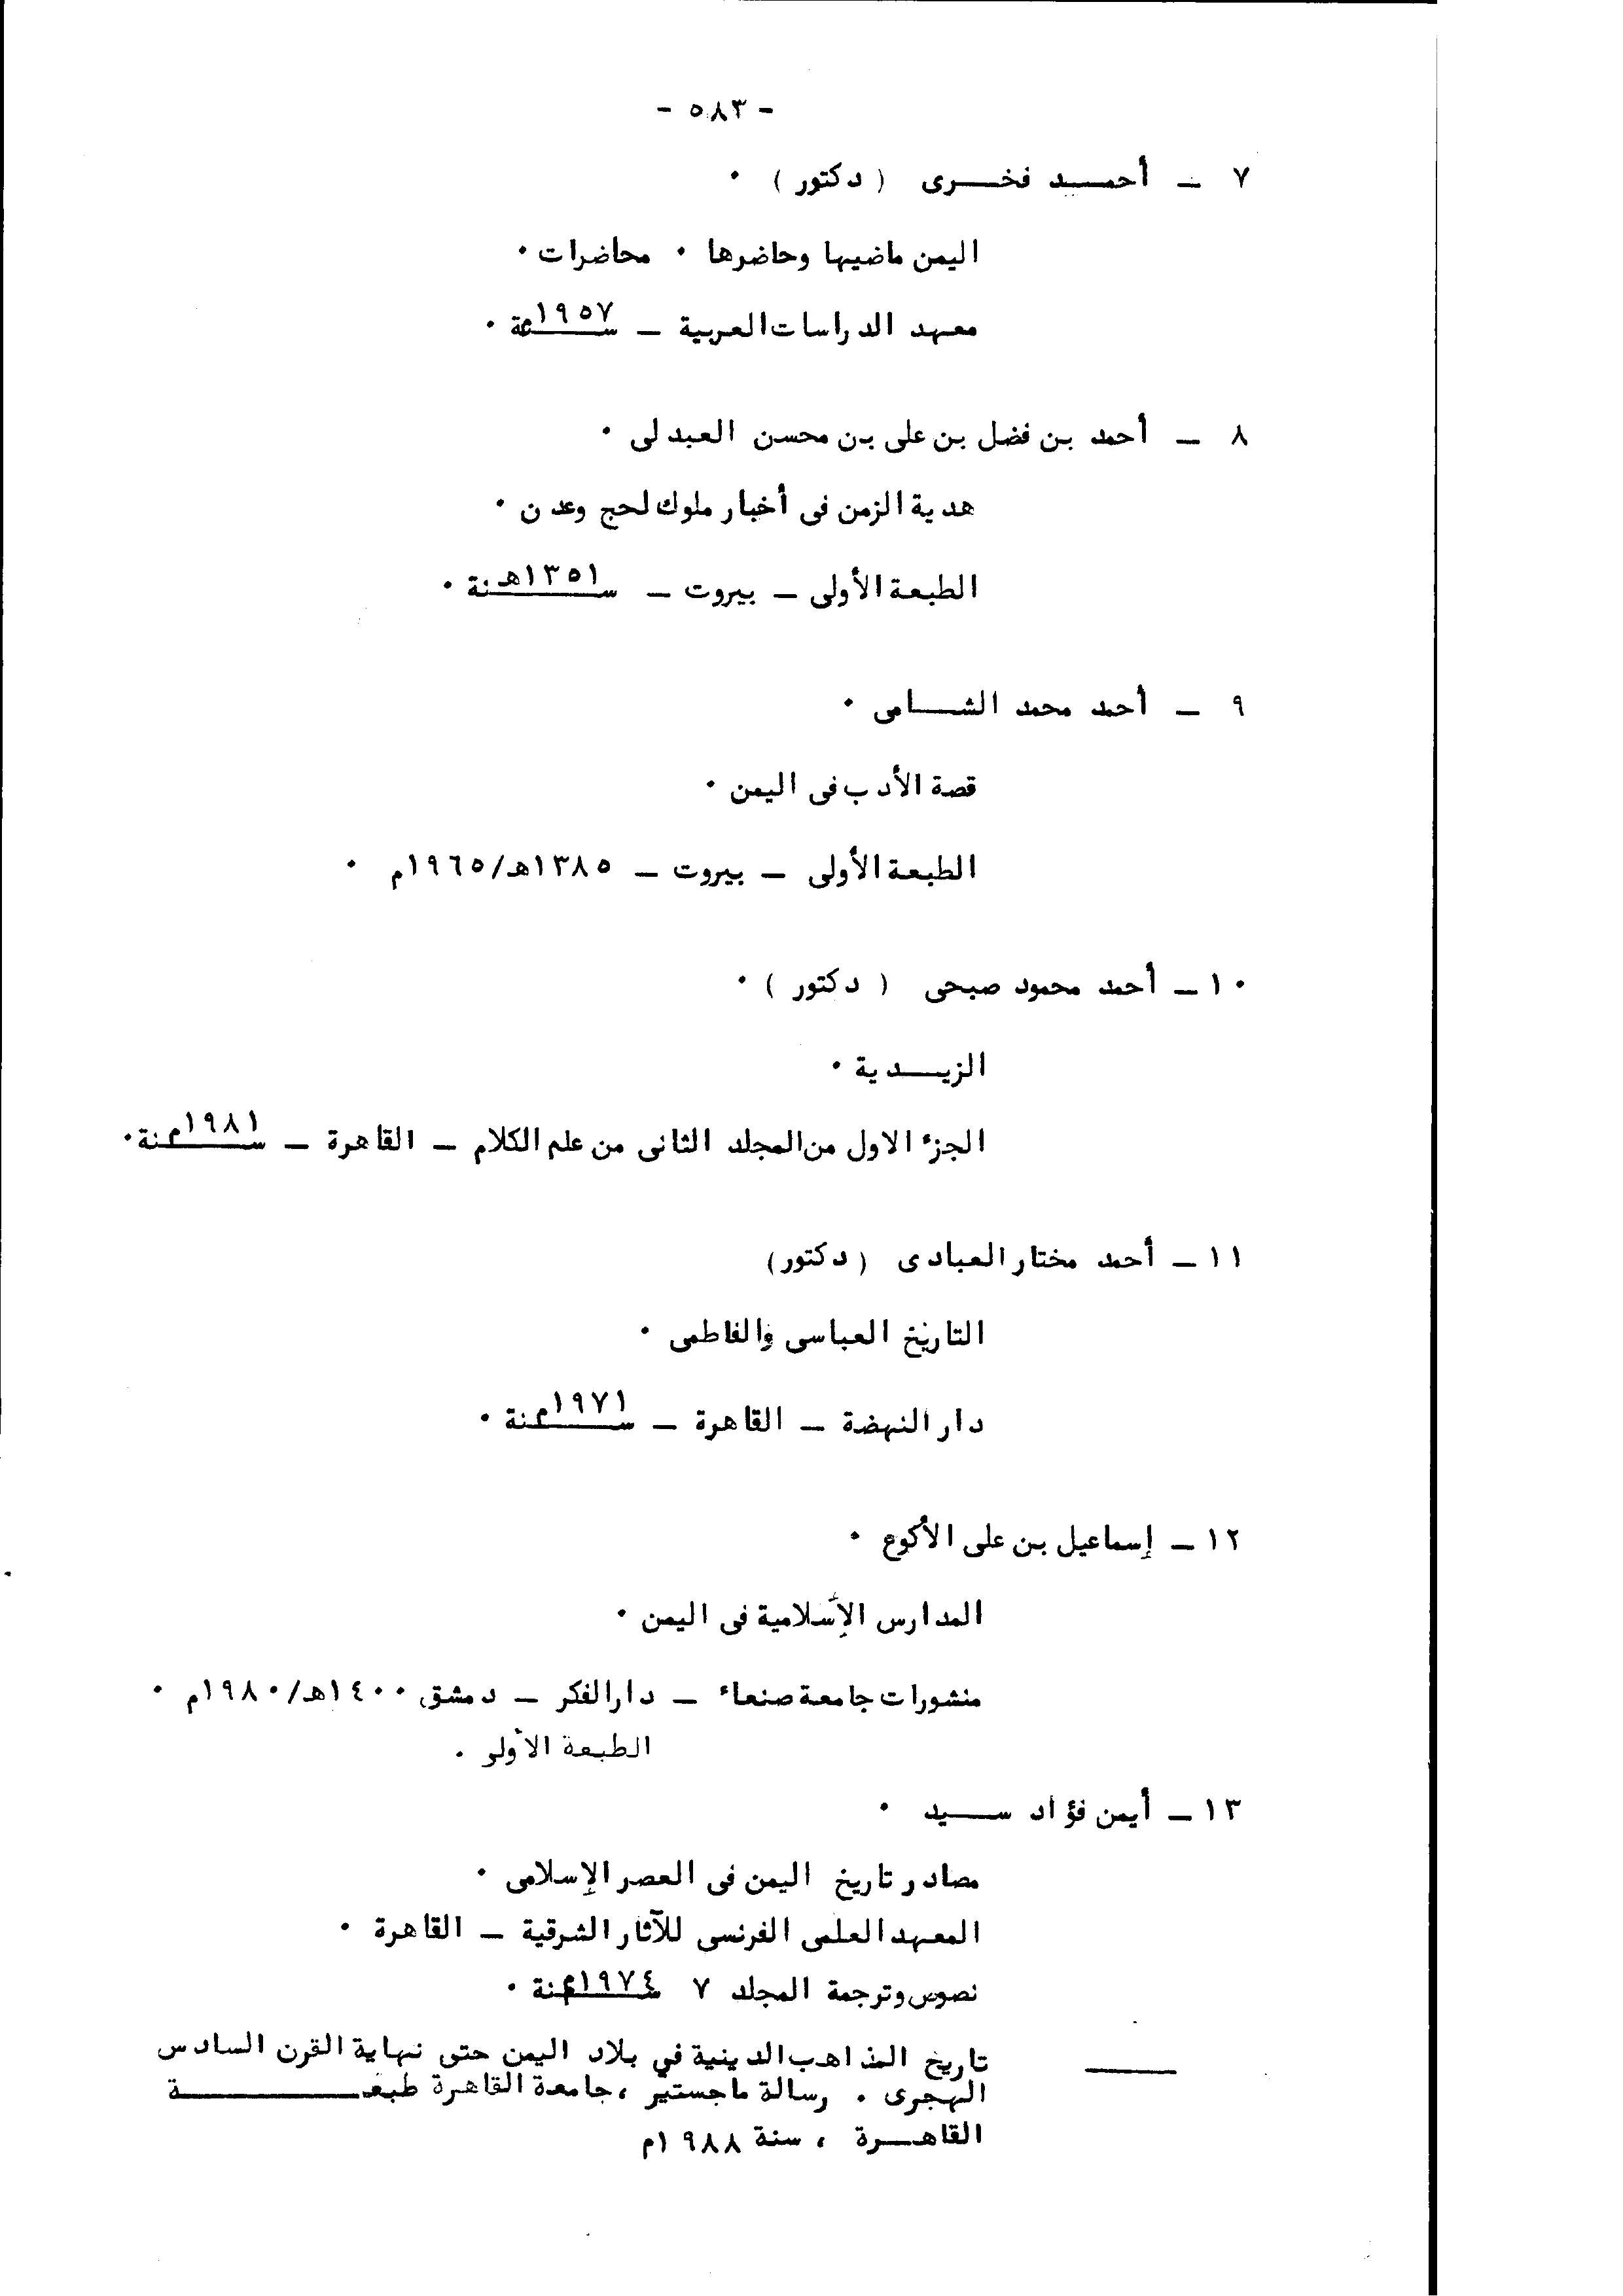 - ٥٨٣ -
٧ - أحمد فخرى ( دكتور ) ٠
اليمن ماضيها وحاضرها ٠ محاضرات ٠
معهد الدراسات العربية - سنة ١٩٥٧ ٠
٨ - أحمد بن فضل بن على بن محسن العبدلى ٠
هدية الزمن فى أخبار ملوك لحج وعدن ٠
الطبعة الأولى - بيروت - سنة ١٣٥١هـ ٠
٩ - أحمد محمد الشامى ٠
قصة الأدب فى اليمن ٠
الطبعة الأولى - بيروت - ١٣٨٥هـ/١٩٦٥م ٠
١٠ - أحمد محمود صبحى ( دكتور ) ٠
الزيدية ٠
الجزء الاول من المجلد الثانى من علم الكلام - القاهرة - سنة ١٩٨١م ٠
١١ - أحمد مختار العبادى ( دكتور)
التاريخ العباسى والفاطمى ٠
دار النهضة - القاهرة - سنة ١٩٧١م ٠
١٢ - إسماعيل بن على الأكوع ٠
المدارس الإسلامية فى اليمن ٠
منشورات جامعة صنعاء - دار الفكر - دمشق ١٤٠٠هـ/١٩٨٠م ٠
الطبعة الأولى .
١٣ - أيمن فؤاد سيد ٠
مصادر تاريخ اليمن فى العصر الإسلامى ٠
المعهد العلمى الفرنسى للآثار الشرقية - القاهرة ٠
نصوص وترجمة المجلد ٧ سنة ١٩٧٤م ٠
ـــــ تاريخ المذاهب الدينية في بلاد اليمن حتى نهاية القرن السادس
الهجرى . رسالة ماجستير ، جامعة القاهرة طبعة
القاهرة ، سنة ١٩٨٨م